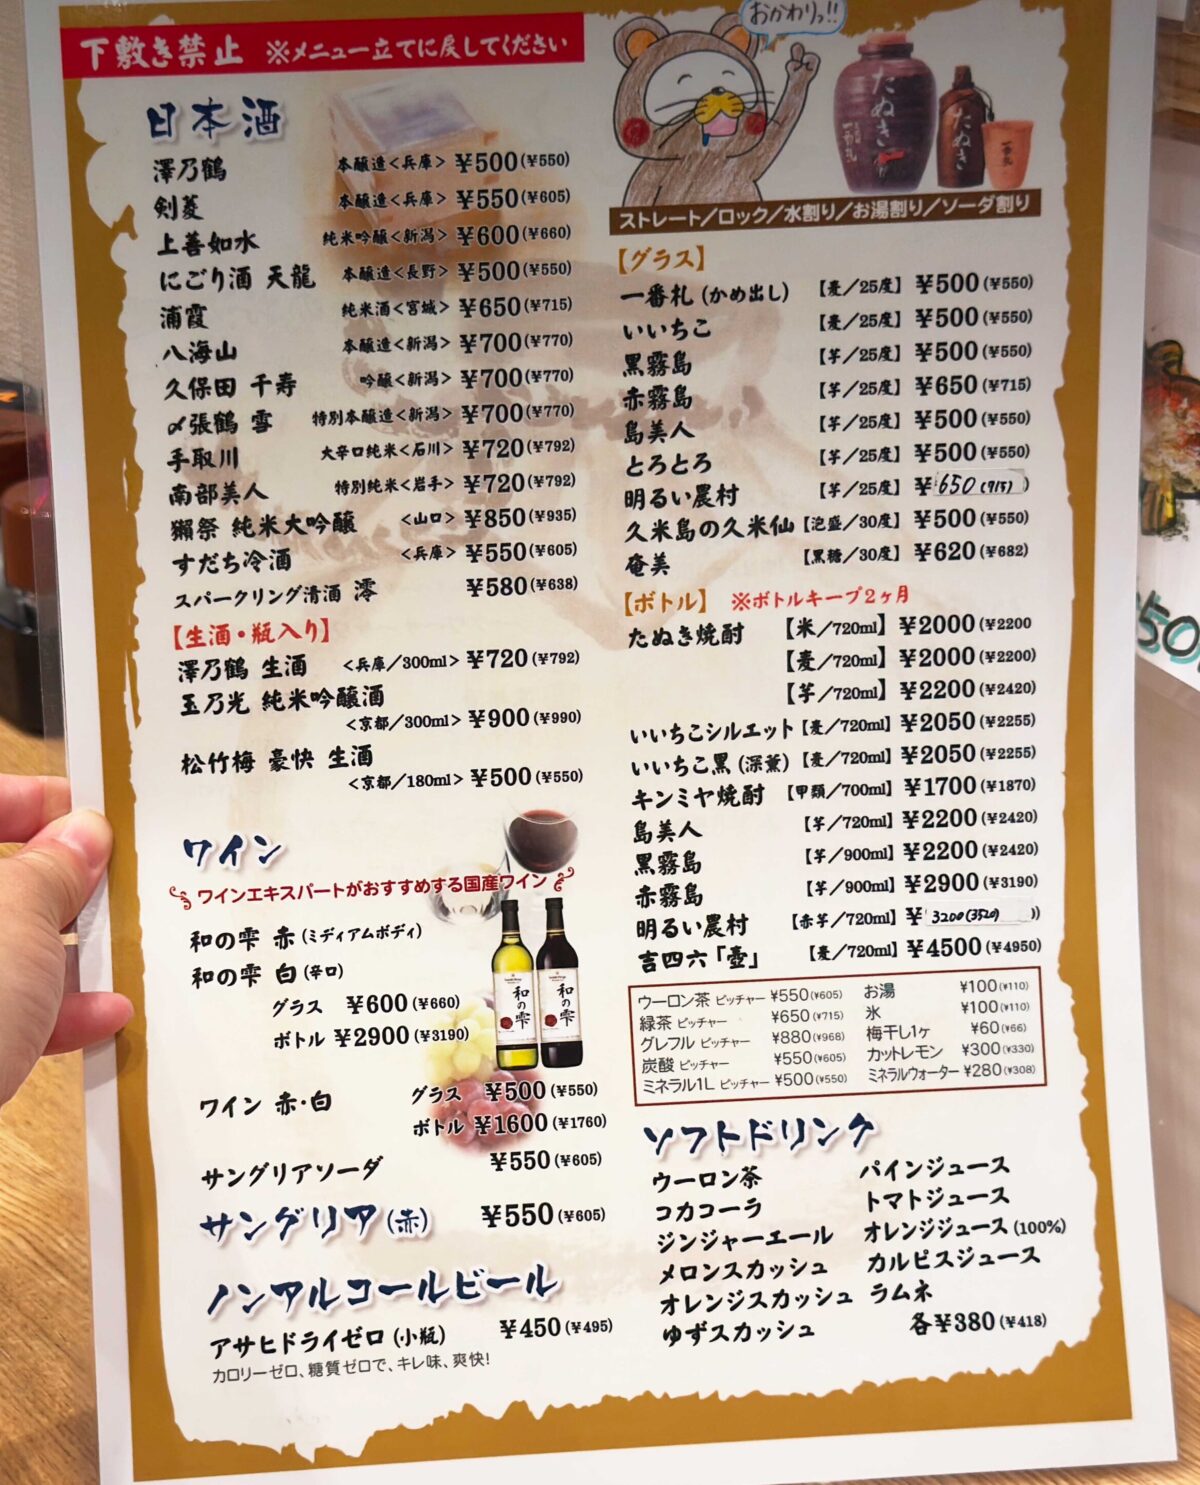 下敷き禁止 ※メニュー立てに戻してください
日本酒
澤乃鶴 本醸造<兵庫> ¥500(¥550)
剣菱 本醸造<兵庫> ¥550(¥605)
上善如水 純米吟醸<新潟> ¥600(¥660)
にごり酒 天龍 本醸造<長野> ¥500(¥550)
浦霞 純米酒<宮城> ¥650(¥715)
八海山 本醸造<新潟> ¥700(¥770)
久保田 千寿 吟醸<新潟> ¥700(¥770)
〆張鶴 雪 特別本醸造<新潟> ¥700(¥770)
手取川 大辛口純米<石川> ¥720(¥792)
南部美人 特別純米<岩手> ¥720(¥792)
獺祭 純米大吟醸 <山口> ¥850(¥935)
すだち冷酒 <兵庫> ¥550(¥605)
スパークリング清酒 澪 ¥580(¥638)
【生酒・瓶入り】
澤乃鶴 生酒 <兵庫/300ml> ¥720(¥792)
玉乃光 純米吟醸酒
<京都/300ml> ¥900(¥990)
松竹梅 豪快 生酒
<京都/180ml> ¥500(¥550)
ワイン
ワインエキスパートがおすすめする国産ワイン
和の雫 赤(ミディアムボディ)
和の雫 白(辛口)
グラス ¥600(¥660)
ボトル ¥2900(¥3190)
和の雫
和の雫
ワイン 赤・白 グラス ¥500(¥550)
ボトル ¥1600(¥1760)
サングリアソーダ ¥550(¥605)
サングリア(赤) ¥550(¥605)
ノンアルコールビール
アサヒドライゼロ(小瓶) ¥450(¥495)
カロリーゼロ、糖質ゼロで、キレ味、爽快!
おかわりっ!!
たぬき
一番札
たぬき
一番札
ストレート/ロック/水割り/お湯割り/ソーダ割り
【グラス】
一番札(かめ出し) 【麦/25度】 ¥500(¥550)
いいちこ 【麦/25度】 ¥500(¥550)
黒霧島 【芋/25度】 ¥500(¥550)
赤霧島 【芋/25度】 ¥650(¥715)
島美人 【芋/25度】 ¥500(¥550)
とろとろ 【芋/25度】 ¥500(¥550)
明るい農村 【芋/25度】 ¥650(715)
久米島の久米仙【泡盛/30度】 ¥500(¥550)
奄美 【黒糖/30度】 ¥620(¥682)
【ボトル】 ※ボトルキープ2ヶ月
たぬき焼酎 【米/720ml】 ¥2000(¥2200
【麦/720ml】 ¥2000(¥2200)
【芋/720ml】 ¥2200(¥2420)
いいちこシルエット【麦/720ml】 ¥2050(¥2255)
いいちこ黒(深薫)【麦/720ml】 ¥2050(¥2255)
キンミヤ焼酎 【甲類/700ml】 ¥1700(¥1870)
島美人 【芋/720ml】 ¥2200(¥2420)
黒霧島 【芋/900ml】 ¥2200(¥2420)
赤霧島 【芋/900ml】 ¥2900(¥3190)
明るい農村 【赤芋/720ml】 ¥3200(3520)
吉四六「壺」 【麦/720ml】 ¥4500(¥4950)
ウーロン茶 ピッチャー ¥550(¥605) お湯 ¥100(¥110)
緑茶 ピッチャー ¥650(¥715) 氷 ¥100(¥110)
グレフル ピッチャー ¥880(¥968) 梅干し1ヶ ¥60(¥66)
炭酸 ピッチャー ¥550(¥605) カットレモン ¥300(¥330)
ミネラル1L ピッチャー ¥500(¥550) ミネラルウォーター ¥280(¥308)
ソフトドリンク
ウーロン茶 パインジュース
コカコーラ トマトジュース
ジンジャーエール オレンジジュース(100%)
メロンスカッシュ カルピスジュース
オレンジスカッシュ ラムネ
ゆずスカッシュ 各¥380(¥418)